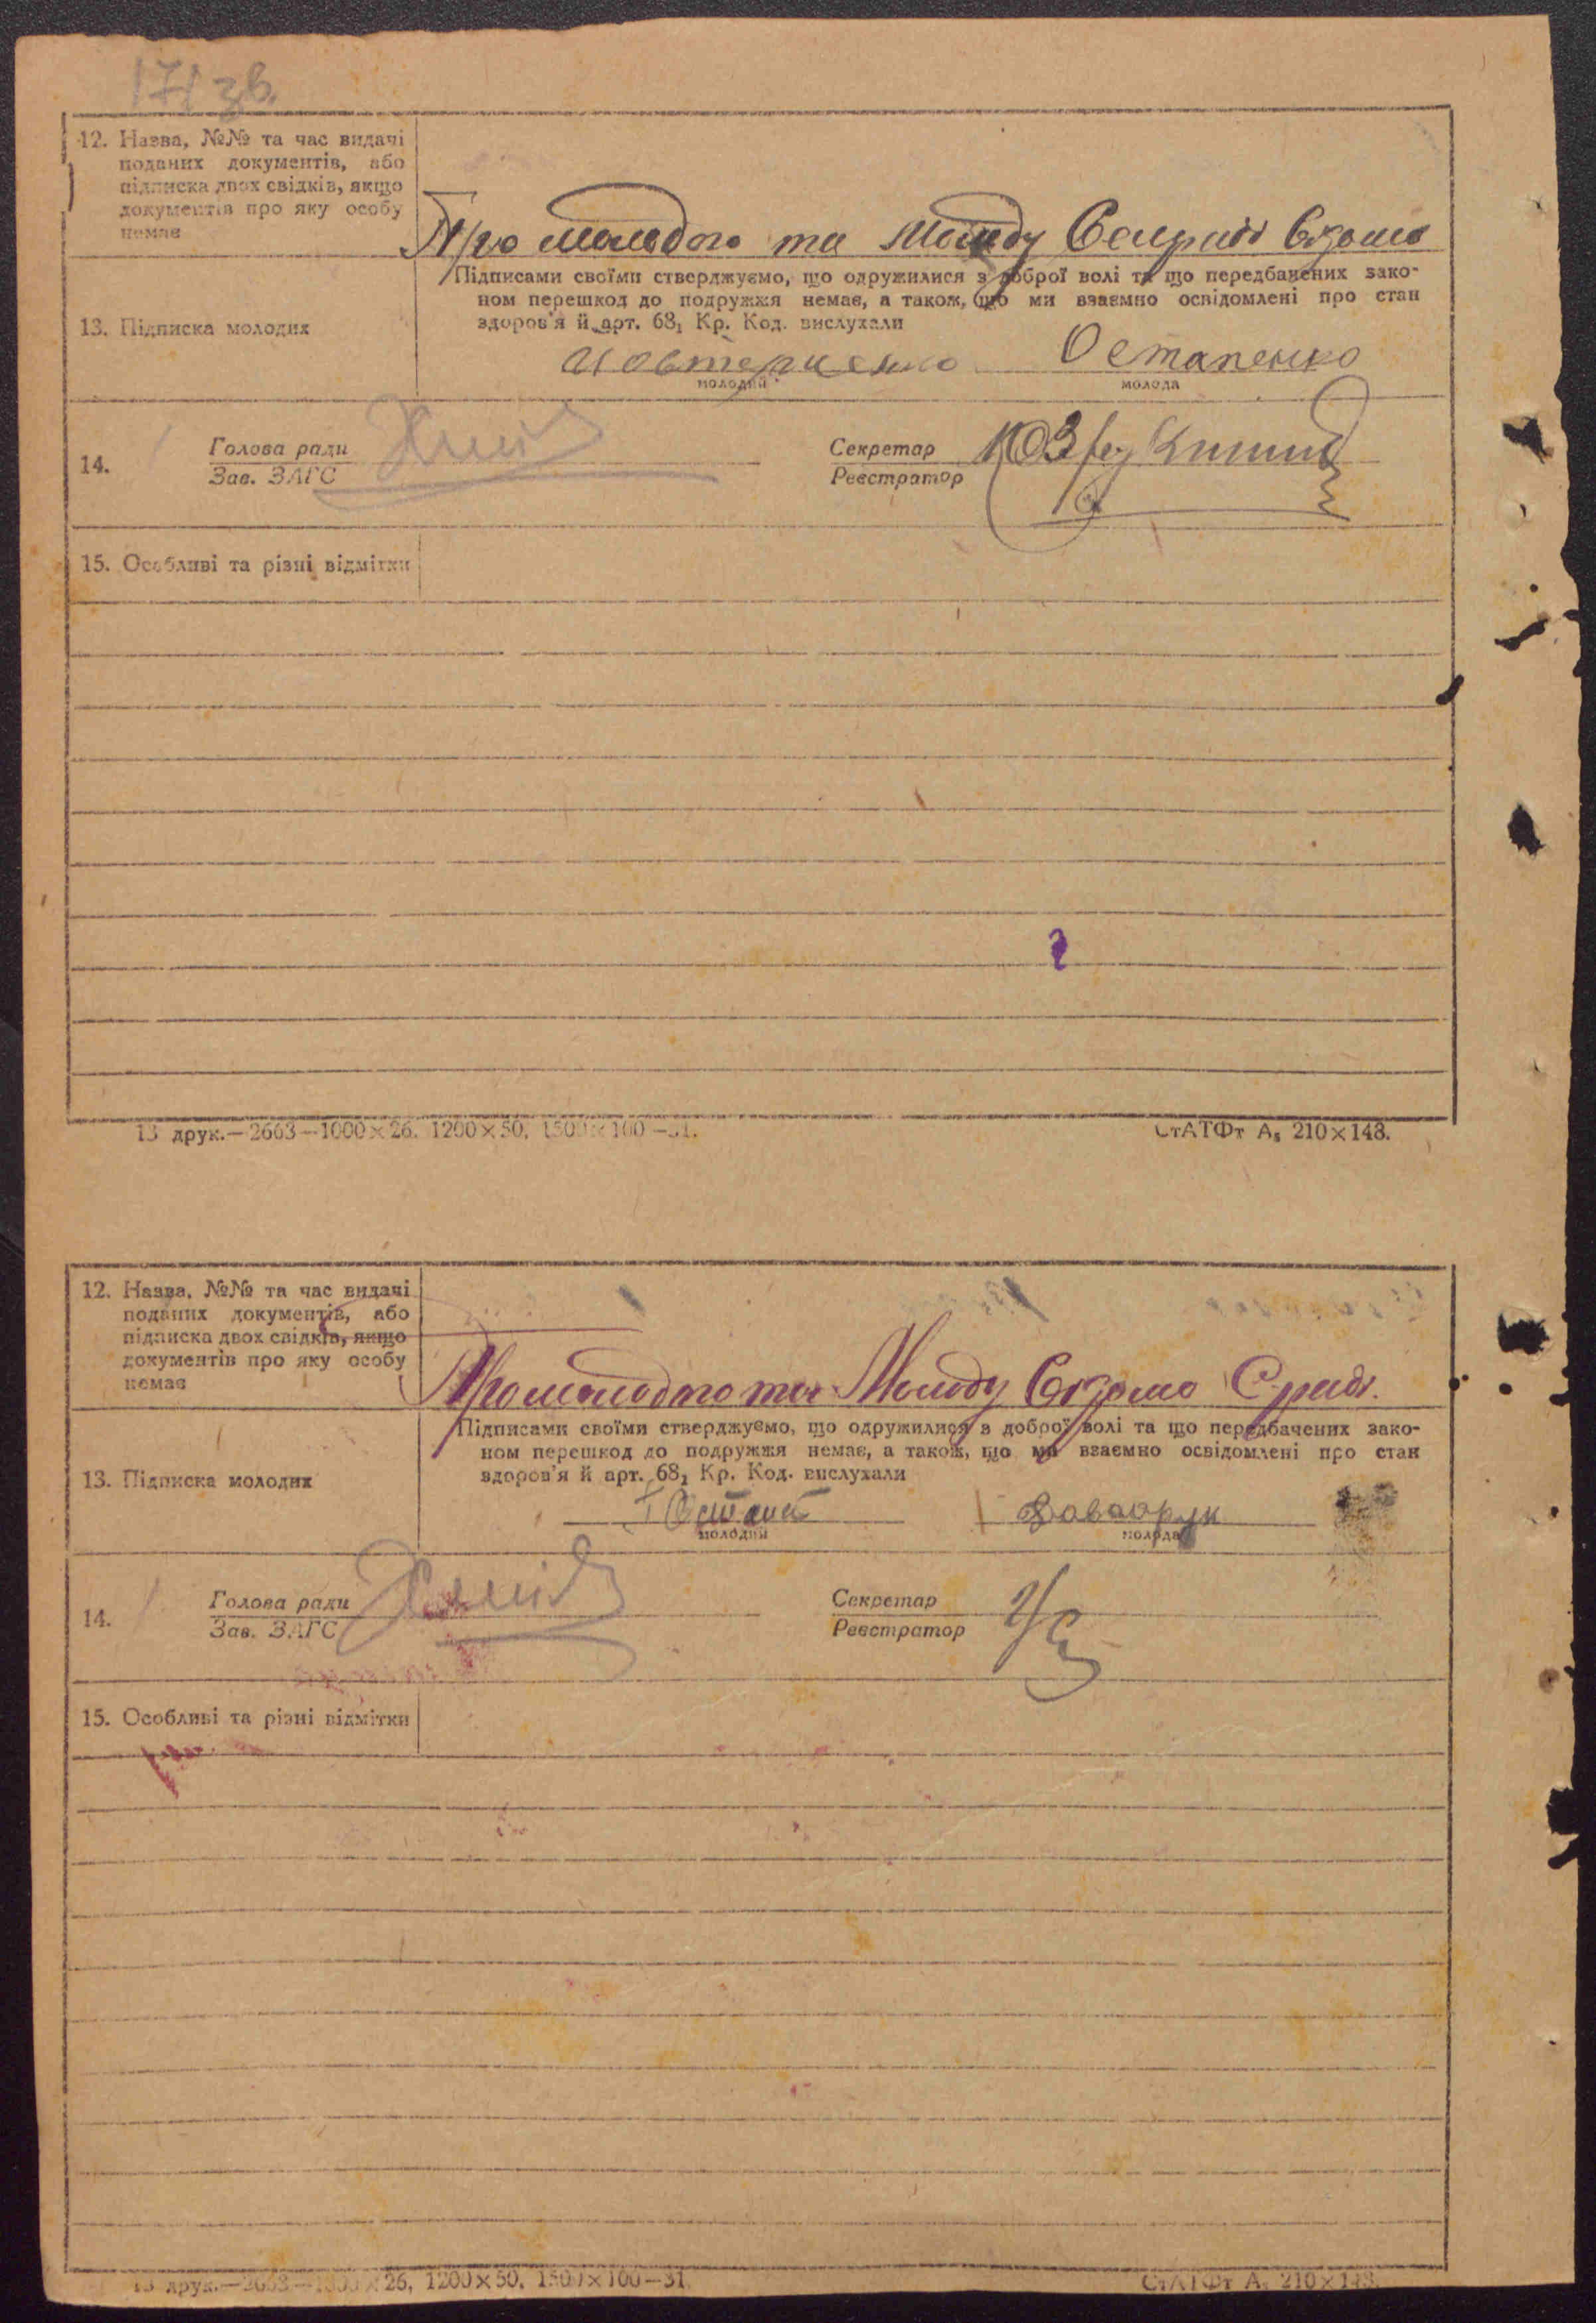 171 зв.
12. Назва, №№ та час видачі
поданих документів, або
підписка двох свідків, якщо
документів про яку особу
немає
Про молодого та молоду Сільраді відомо
13. Підписка молодих
Підписами своїми стверджуємо, що одружилися з доброї волі та що передбачених зако-
ном перешкод до подружжя немає, а також, що ми взаємно освідомлені про стан
здоров'я й арт. 68₁ Кр. Код. вислухали
Остапенко
молодий молода
14. Голова ради Секретар
Зав. ЗАГС Реєстратор
15. Особливі та різні відмітки
13 друк.—2663—1000×26. 1200×50, 1500×100—31.
СтАТФт А₅ 210×148.
12. Назва, №№ та час видачі
поданих документів, або
підписка двох свідків, якщо
документів про яку особу
немає
Про молодого та Молоду відомо С/раді.
13. Підписка молодих
Підписами своїми стверджуємо, що одружилися з доброї волі та що передбачених зако-
ном перешкод до подружжя немає, а також, що ми взаємно освідомлені про стан
здоров'я й арт. 68₁ Кр. Код. вислухали
молодий молода
14. Голова ради Секретар
Зав. ЗАГС Реєстратор
15. Особливі та різні відмітки
13 друк.—2663—1000×26, 1200×50, 1500×100—31.
СтАТФт А₅ 210×148.